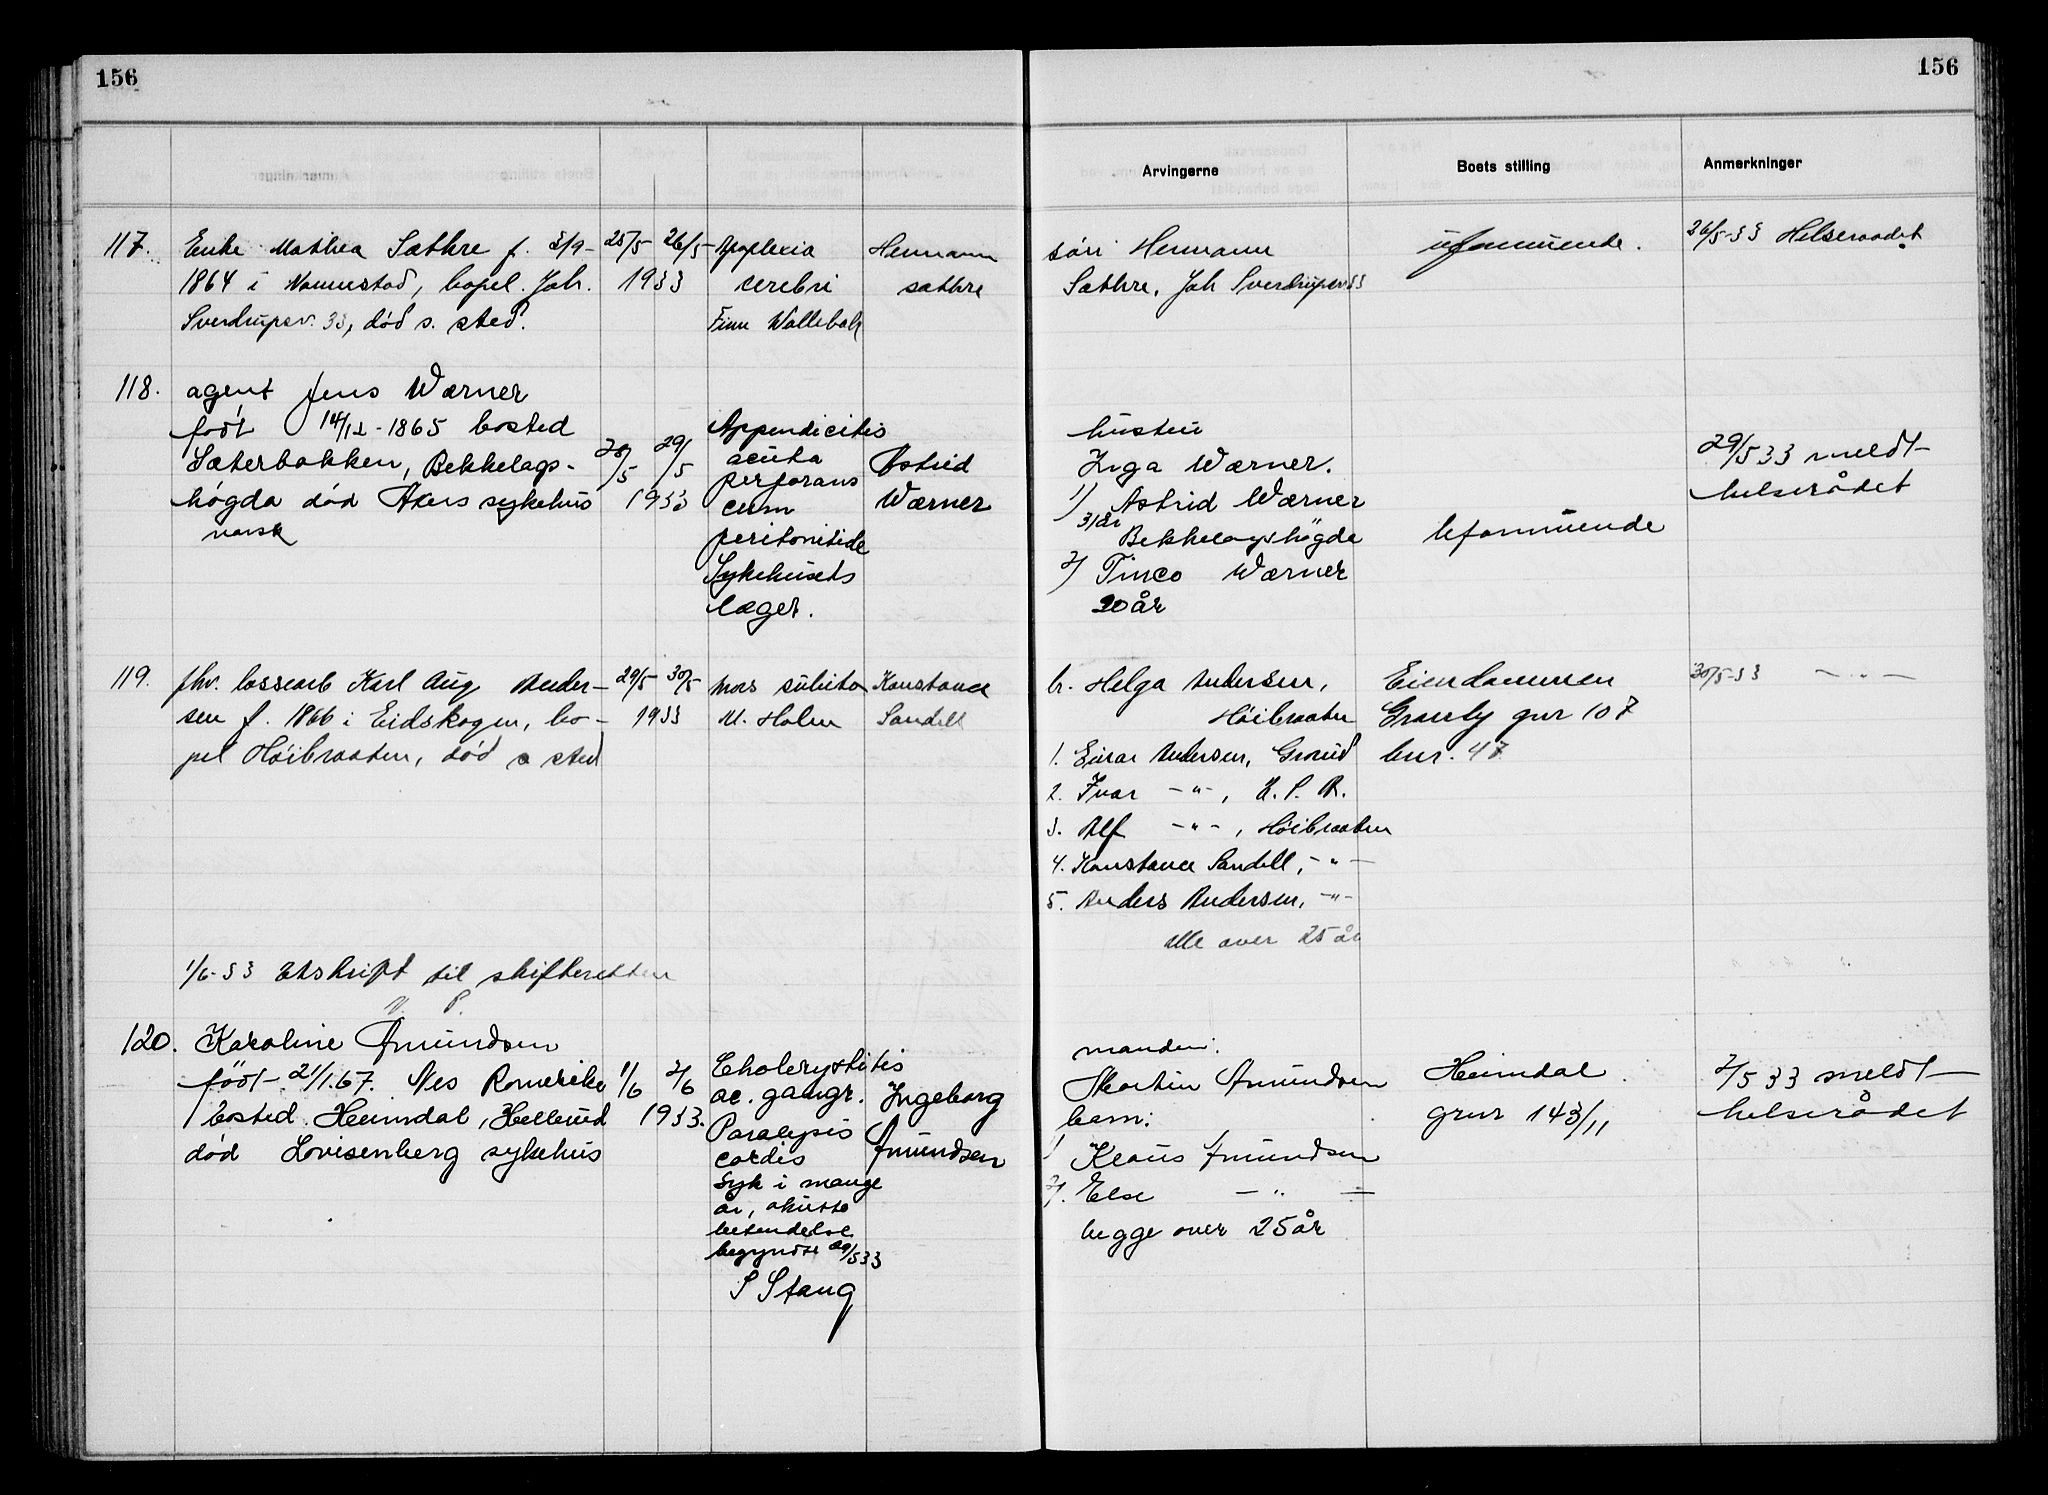 156
156
Arvingerne Boets stilling Anmerkninger
117. Enke Mathea Sæthre f. 3/9-
1864 i Namnstad, bopel. Joh.
Sverdrupsv. 33, död s. sted.
25/5 26/5
1933
Apoplexia
cerebri
Finn Wallebak
Hermann
Sæthre
sön Hermann
Sæthre, Joh Sverdrupsv 33
uformuende.
26/5-33 Helseraadet
118. agent Jens Wærner
födt 14/12-1865 bosted
Sæterbakken, Bekkelags-
högda död Akers sykehus
norsk
28/5 29/5
1933
Appendicitis
acuta
perforans
cum
peritonitide
Sykehusets
læger.
Astrid
Wærner
hustru
Inga Wærner.
1) Astrid Wærner
31 år
Bekkelagshögda
2) Tinco Wærner
20 år
Uformuende
29/5 33 meldt
helserådet
119. fhv. lossearb Karl Aug Ander-
sen f. 1866 i Eidskogen, bo-
pel Höibraaten, död s sted
29/5 30/5
1933
Mors subita
M. Holm
Konstance
Sandell
Helga Andersen,
Höibraaten
1. Einar Andersen, Grorud
2. Ivar -"-,
3. Alf -"-, Höibraaten
4. Konstance Sandell, -"-
5. Anders Andersen, -"-
alle over 25 år
Eiendommen
Granly gnr 107
bnr. 47
30/5-33 -"-
1/6-33 Utskrift til skifteretten
120. Karoline Amundsen
födt 21/1.67. Nes Romerike
bosted Heimdal, Hellerud
död Lovisenberg sykehus
1/6 2/6
1933.
Cholecystitis
ac. gangr.
Paralysis
cordis
Syk i mange
år, akutte
betendelse
begyndte 29/5 33
S Stang
Ingeborg
Amundsen
manden:
Martin Amundsen
barn:
1) Klaus Amundsen
2). Else -"-
begge over 25 år
Heimdal
gnr 143/11
2/5 33 meldt
helserådet